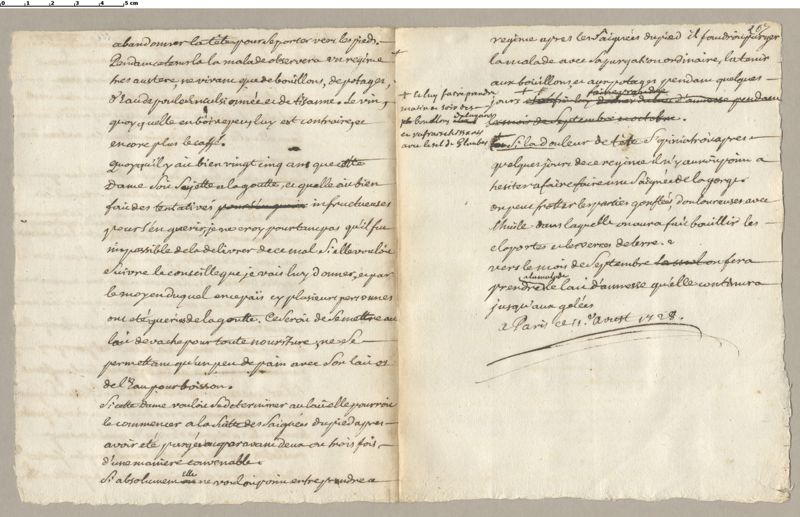 abandonner la tête pour se porter vers les pieds.
Pendant ce tems la la malade observera un régime
tres austere, ne vivant que de bouillons, de potages,
d'Eau de poulet emulsionnée et de tisanne. Le vin,
quoy qu'elle en boive peu, luy est contraire, et
encore plus le caffé.
quoyqu'il y ait bien vingt cinq ans que cette
Dame soit sujette a la goutte, et qu'elle ait bien
fait des tentatives infructueuses
pour s'en guerir, je ne croy pourtant pas qu'il fut
impossible de la delivrer de ce mal si elle vouloit
suivre le conseille que je vais luy donner, et par
le moyen duquel en ce païs cy plusieurs personnes
ont été gueries de la goutte. Ce seroit de se mettre au
lait de vache pour toute nourriture, ne se
permettant qu'un peu de pain avec son lait et
de l'Eau pour boisson.
Si cette Dame vouloit se determiner au lait elle pourroit
le commencer a la suitte des saignées du pied apres
avoir été purgée auparavant deux ou trois fois,
d'une maniere convenable.
Si absolument elle ne vouloit point entreprendre ce
167
regime apres les saignées du pied il faudroit purger
la malade avec sa purgation ordinaire, la tenir
aux bouillons et aux potages pendant quelques
jours faire prendre donner du lait d'annesse pendant
le mois de septembre et octobre.
+ et luy faire prendre
matin et soir des
bouillons
et rafraichissans
avec le sel de Glauber
Si la douleur de tête s'opiniatroit apres
quelques jours de ce regime il n'y auroit point a
hesiter a faire faire une saignée de la gorge
on peut frotter les parties gonflées douloureuses avec
l'huile dans laquelle on aura fait bouillir les
cloportes et les verces de terre.
vers le mois de septembre on fera
prendre a la malade le lait d'annesse qu'elle continuera
jusqu'aux gelées
a Paris ce 11.e Aoust 1728.